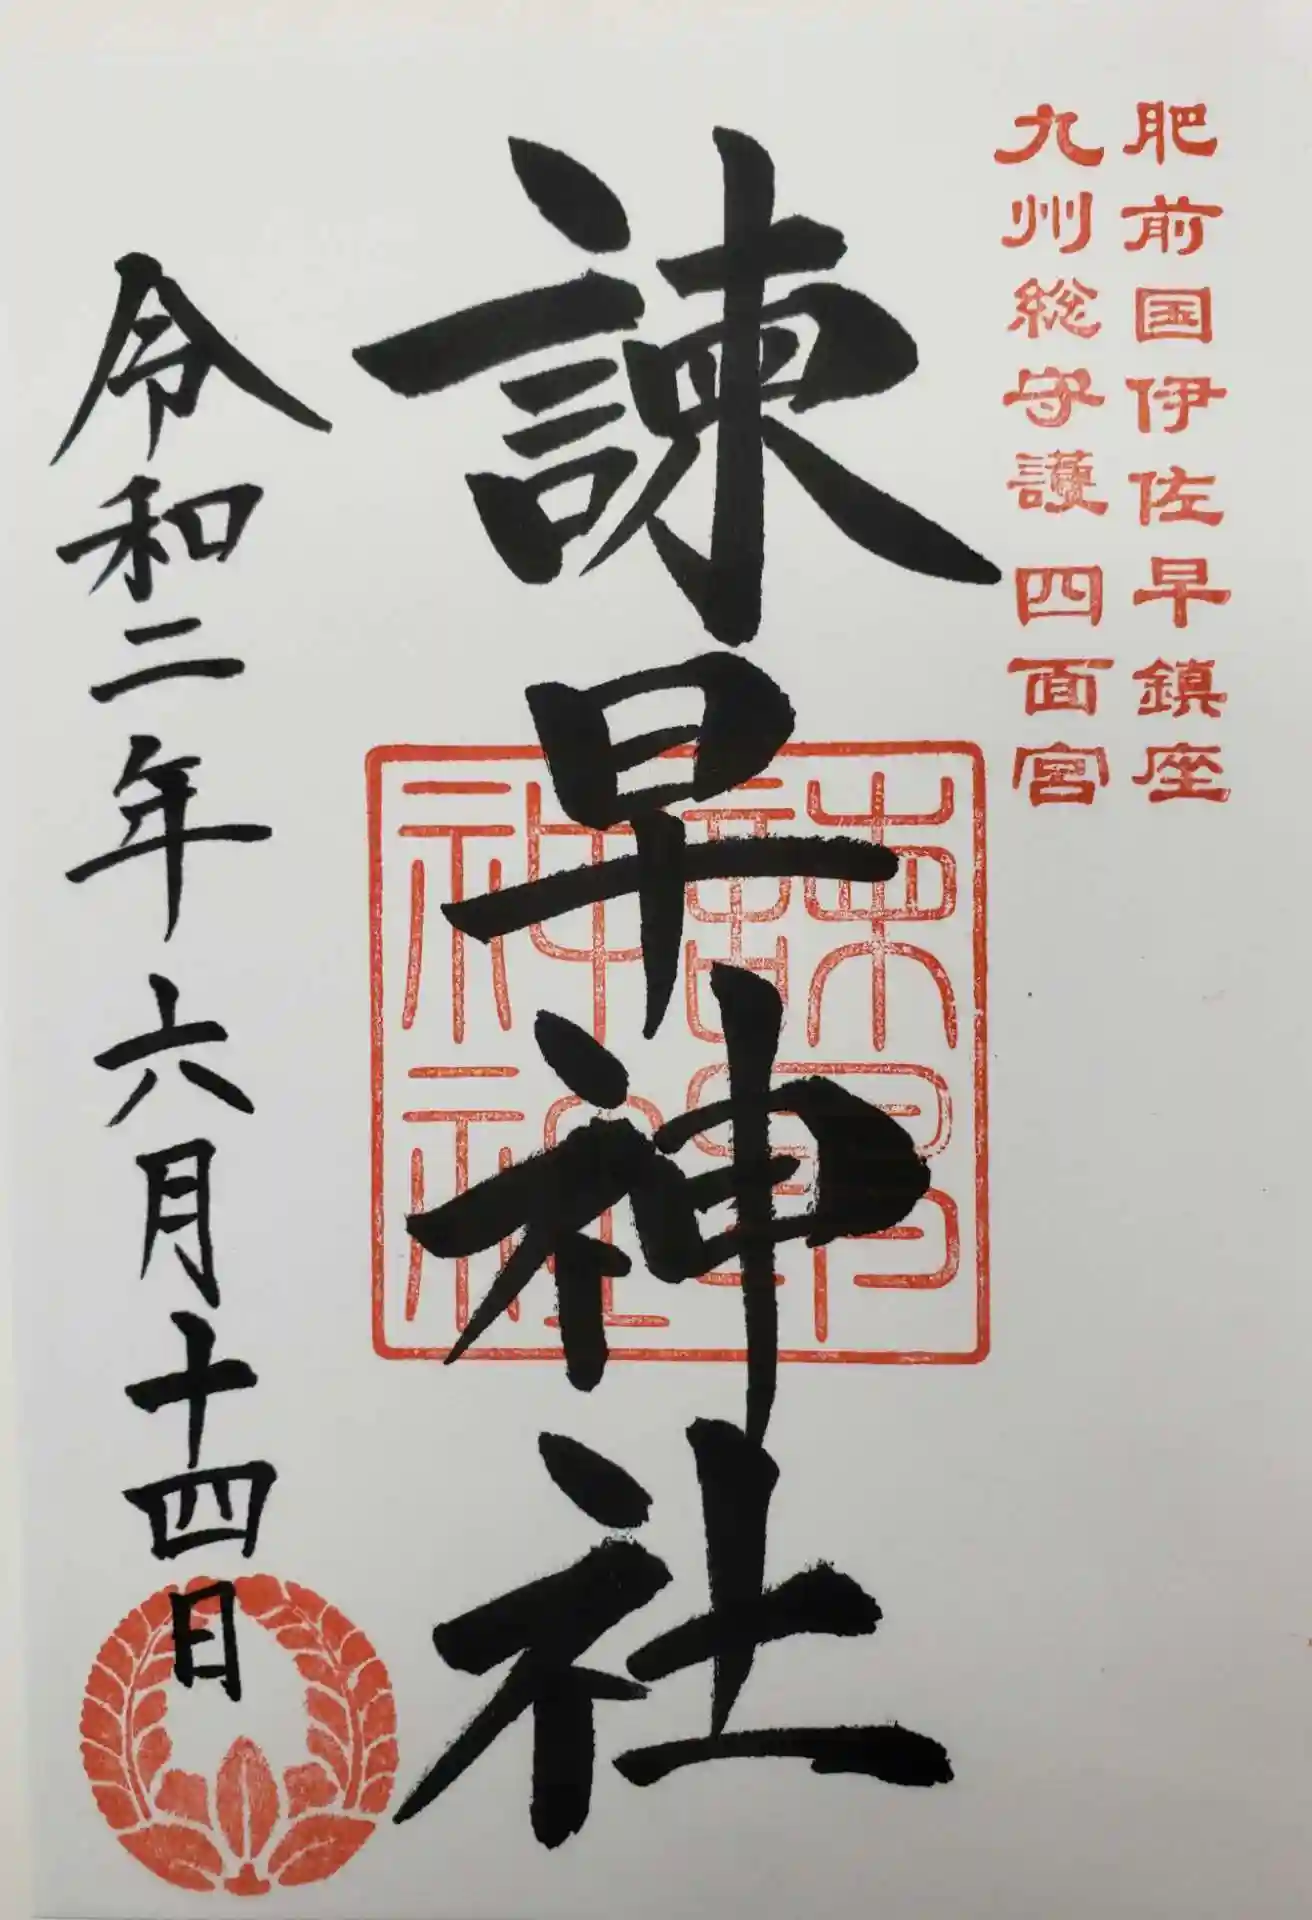 肥前国伊佐早鎮座
九州総守護 四面宮
諫早神社
諫早
神社
令和二年六月十四日